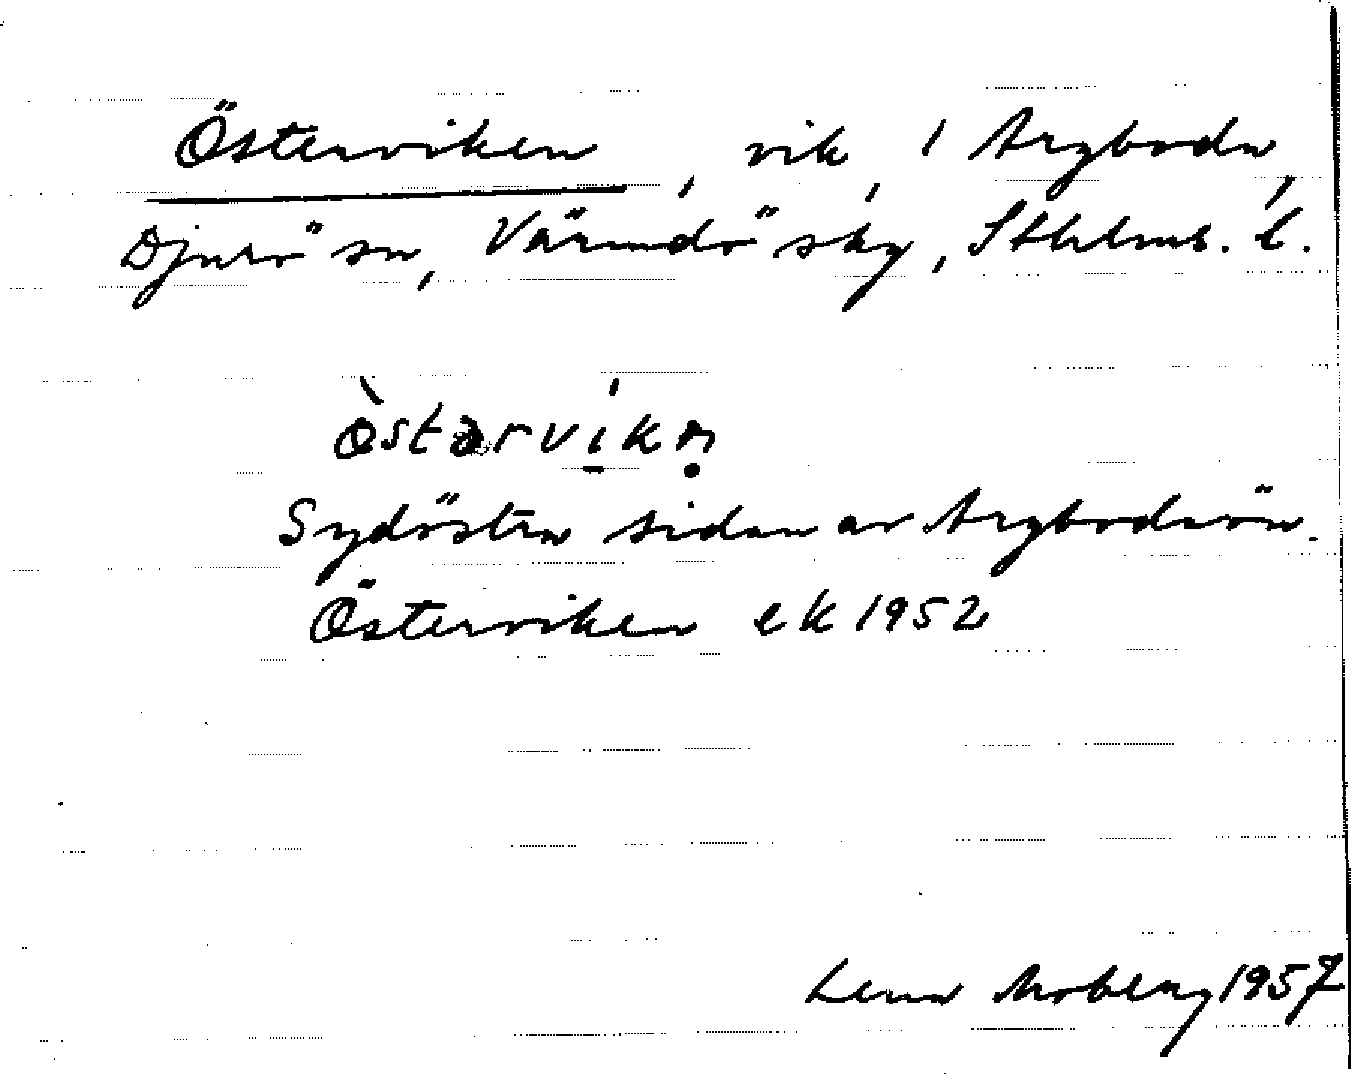 Österviken, vik, i Aspboda,
Djurö sn, Värmdö skg, Sthlms. l.
östərvikn̥
Sydöstra sidan av Aspbodaön.
Österviken ek 1952
Lena Moberg 1957